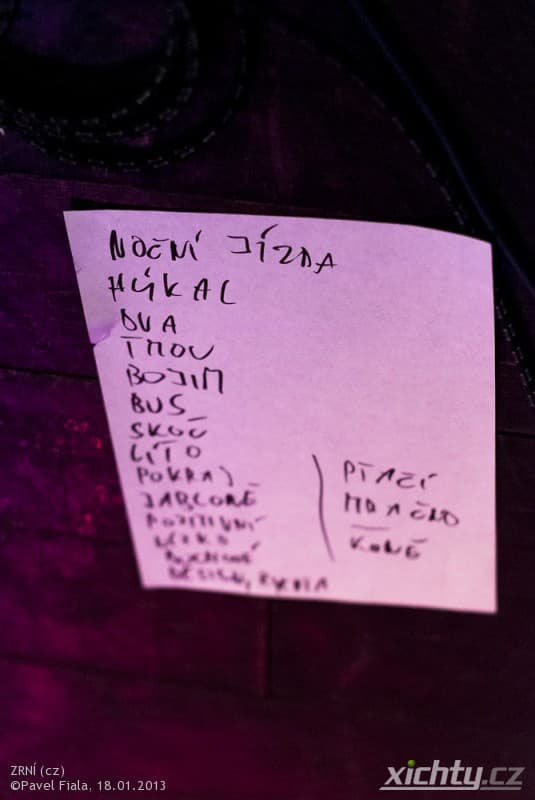 NOČNÍ JÍZDA
HÝKAL
DVA
TMOU
BOJIM
BUS
SKOČ
LÍTO
POKRAJ
JABLONĚ
POZITIVNÍ
RYCHLÍK
PTAČÍ
KONĚ
ZRNÍ (cz)
©Pavel Fiala, 18.01.2013
xichty.cz